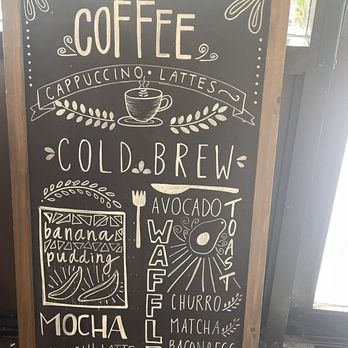 COFFEE
CAPPUCCINO • LATTES
COLD BREW
banana
pudding
MOCHA
LATTE
AVOCADO
TOAST
WAFFLE
CHURRO
MATCHA
BACON EGG